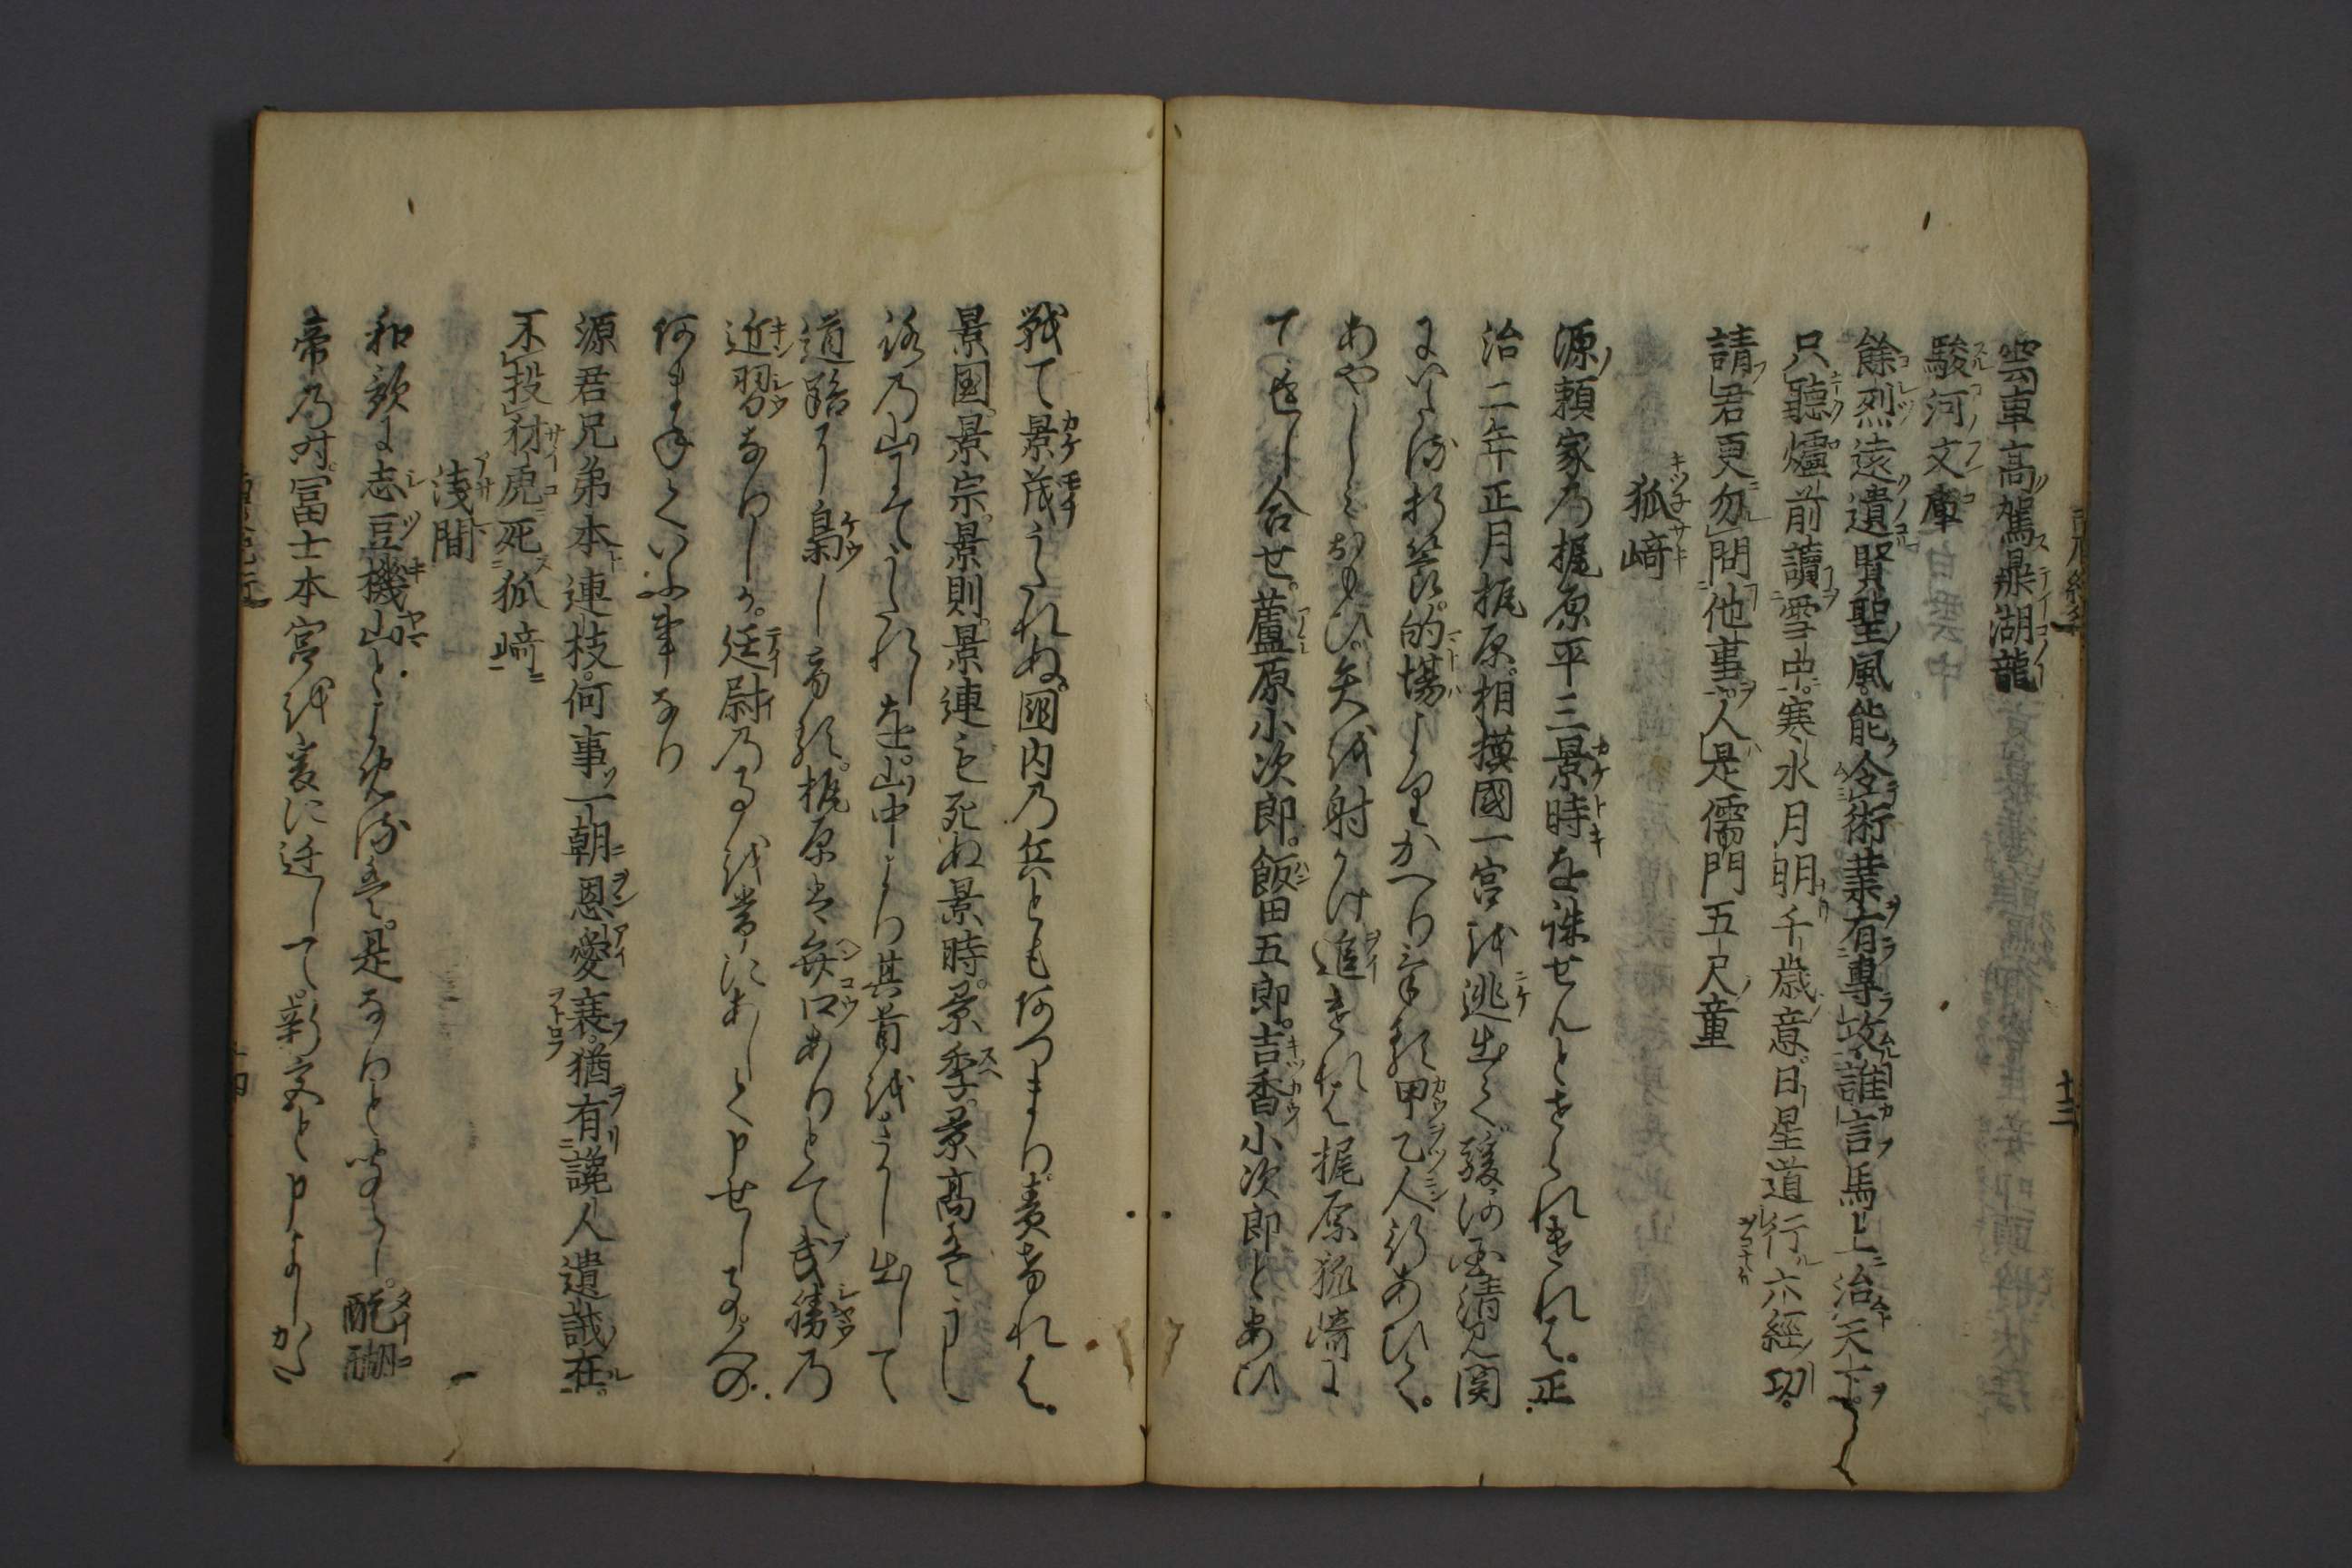 雲車高駕鼎湖龍
駿河文庫
餘烈遠遺賢聖風能令術業有專攻誰言馬上治天下
只聽爐前讀雪中寒水月明千歳意日星道行六經功
請君更勿問他事人是儒門五尺童
狐﨑
源頼家乃梶原平三景時を誅せんとせられけれは正
治二年正月梶原相摸國一宮を逃出て駿河国清見関
にいたる折節的場よりかへりける甲乙人行あひて
あやしとおもひ矢を射かけ追けれは梶原狐崎に
て返し合せ蘆原小次郎飯田五郎吉香小次郎とあひ
戦て景茂うたれぬ國内の兵ともあつまり責けれは
景国景宗景則景連も死ぬ景時景季景高はうし
ろの山にてうたれしを山中より其首をさかし出して
道路に梟しける梶原は弁口ありとて武勝の
近習なりしか廷尉の事を常にあしく申せし事人の
あまねくいふ事なり
源君兄弟本連枝何事一朝恩愛衰猶有讒人遺誡在
不投豺虎死狐﨑
浅間
和歌に志豆機山とよめるは是なりと聞えし醍醐
帝乃時冨士本宮を爰に迁して新宮と申よしかた